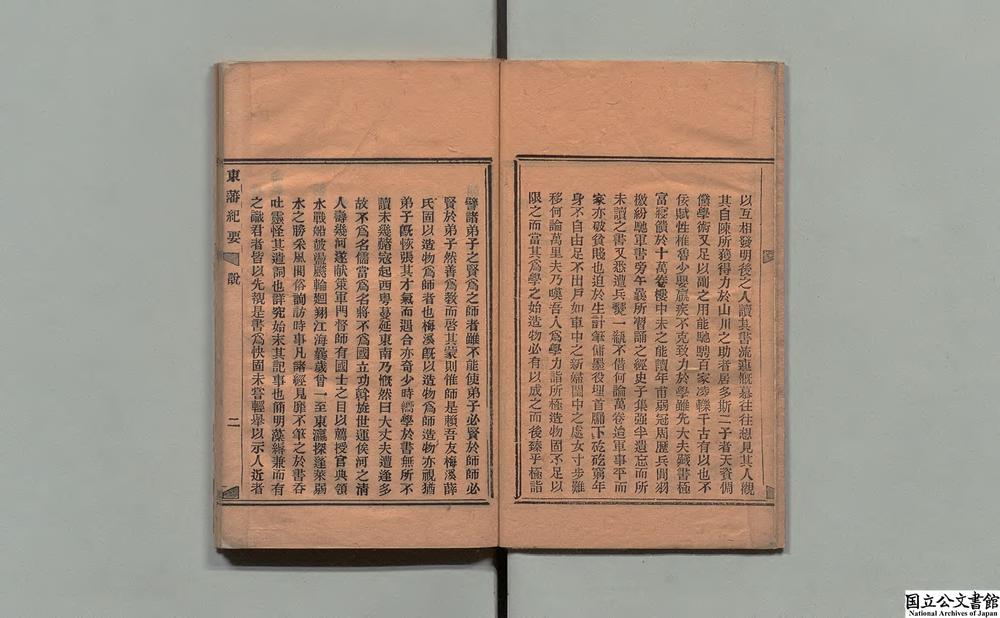 以互相發明後之人讀其書流連慨慕往往想見其人觀
其自陳所獲得力於山川之助者居多斯二子者天資倜
儻學術又足以副之用能馳騁百家凌轢千古有以也不
佞賦性椎魯少嬰羸疾不克致力於學雖先大夫藏書極
富寢饋於十萬卷樓中未之能讀年甫弱冠周歷兵間羽
檄紛馳軍書旁午曩所習誦之經史子集強半遺忘而所
未讀之書又悉遭兵燹一瓻不借何論萬卷迨軍事平而
家亦破貧賤也迫於生計筆傭墨役埋首牖下矻矻窮年
身不自由足不出戶如車中之新婦閨中之處女寸步難
移何論萬里夫乃嘆吾人爲學力詣所極造物固不足以
限之而當其爲學之始造物必有以成之而後臻乎極詣
譬諸弟子之賢爲之師者雖不能使弟子必賢於師師必
賢於弟子然善爲敎而啓其蒙則惟師是賴吾友梅溪薛
氏固以造物爲師者也梅溪旣以造物爲師造物亦視猶
弟子旣恢張其才氣而遇合亦奇少時嚅學於書無所不
讀未幾赭寇起西粤蔓延東南乃慨然曰大丈夫遭逢多
故不爲名儒當爲名將不爲國立功斡旋世運俟河之淸
人壽幾何遂獻策軍門督師有國士之目以薦授官典領
水戰船破浪颿輪廻翔江海曩歲曾一至東瀛探蓬萊弱
水之勝采風問俗詢訪時事凡諸經見靡不筆之於書吞
吐靈怪其遣詞也詳究始末其記事也簡明藻績兼而有
之識君者皆以先覩是書爲快固未嘗輕舉以示人近者
東藩紀要
說
二
国立公文書館
National Archives of Japan